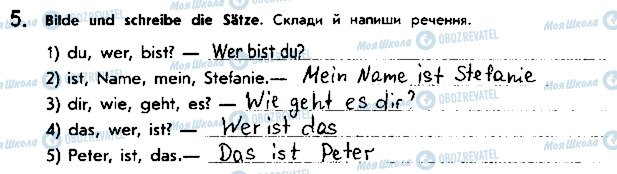 5. Bilde und schreibe die Sätze. Склади й напиши речення.
1) du, wer, bist? — Wer bist du?
2) ist, Name, mein, Stefanie. — Mein Name ist Stefanie
3) dir, wie, geht, es? — Wie geht es dir?
4) das, wer, ist? — Wer ist das
5) Peter, ist, das. — Das ist Peter